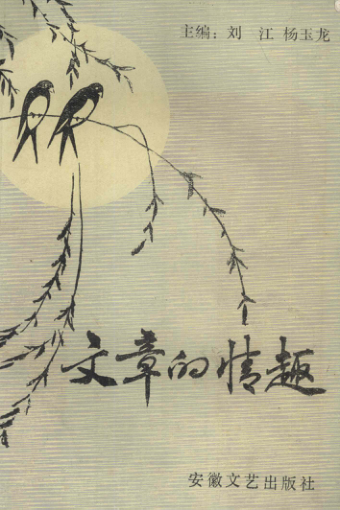 主编：刘 江 杨玉龙
文章的情趣
安徽文艺出版社